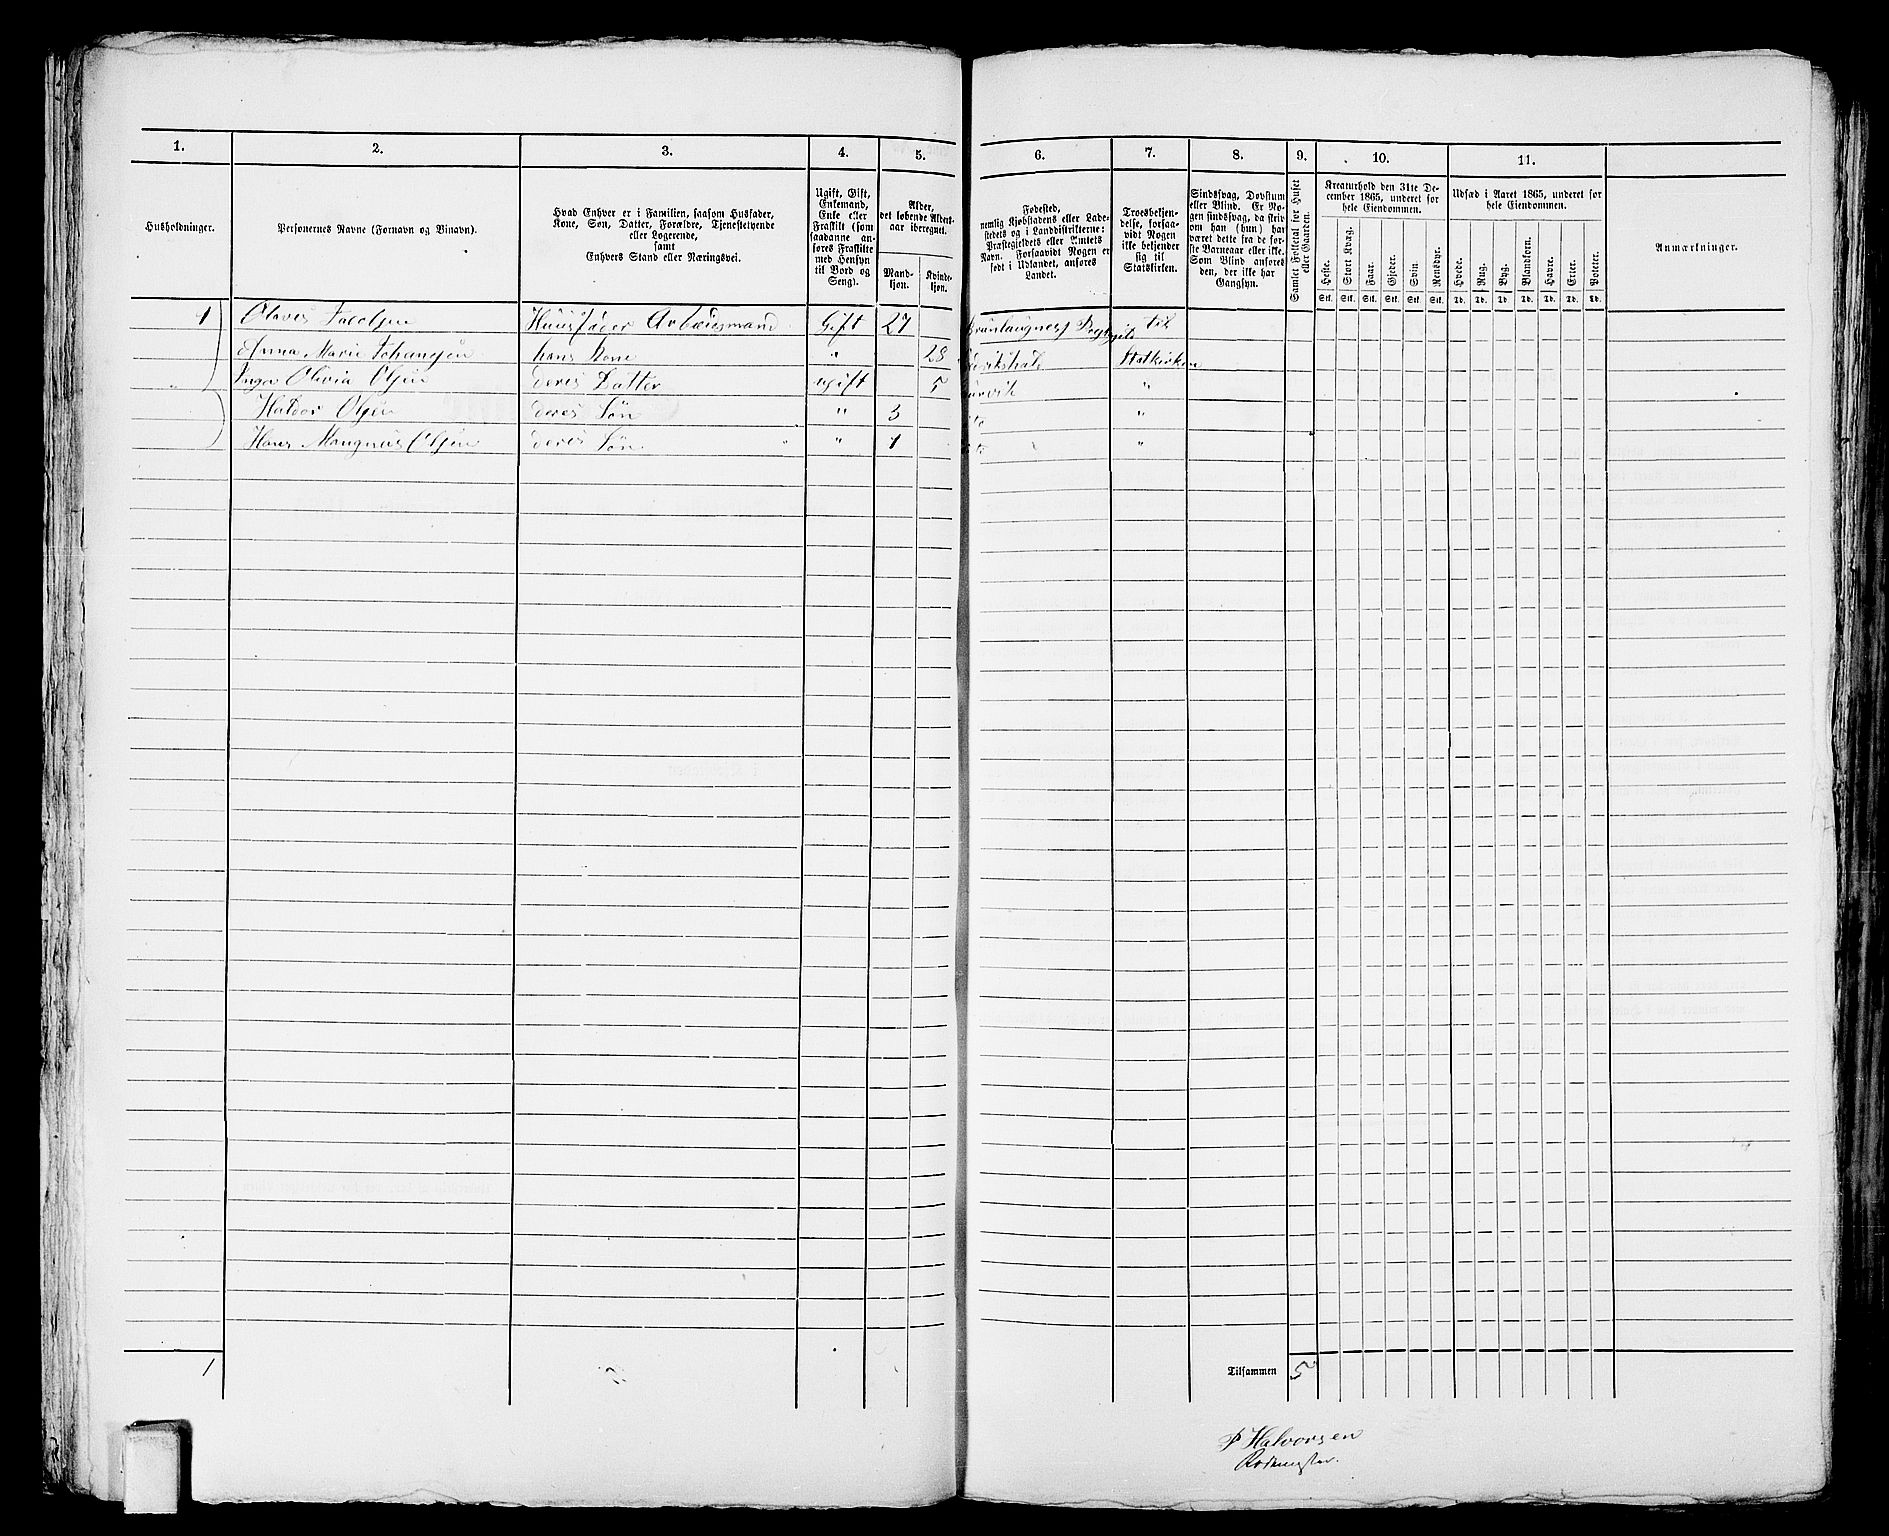 1.
2.
3.
4.
5.
Husholdninger.
Personernes Navne (Fornavn og Binavn).
Hvad Enhver er i Familien, saasom Husfader,
Kone, Søn, Datter, Forældre, Tjenestetyende
eller Logerende,
samt
Enhvers Stand eller Næringsvei.
Ugift, Gift,
Enkemand,
Enke eller
Fraskilt (som
saadanne an-
føres Fraskilte
med Hensyn
til Bord og
Seng).
Alder,
det løbende Alders-
aar iberegnet.
Mand-
kjøn.
Kvinde-
kjøn.
1 Olaves Huusfader Arbeidsmand Gift 27
Anna Marie Johansen hans Kone " 28
Inga Olivia Olsen deres Datter ugift 5
Haldor Olsen deres Søn " 3
Hans Mangnus Olsen deres Søn " 1
1
6.
7.
8.
9.
10.
11.
Fødested,
nemlig Kjøbstadens eller Lade-
stedets og i Landdistrikterne:
Præstegjeldets eller Amtets
Navn. Forsaavidt Nogen er
født i Udlandet, anføres
Landet.
Troesbekjen-
delse, forsaa-
vidt Nogen
ikke bekjender
sig til
Statskirken.
Sindssvag, Døvstum
eller Blind. Er No-
gen sindssvag, da skriv
om han (hun) har
været dette fra de før-
ste Barneaar eller ikke.
Som Blind anføres
den, der ikke har
Gangsyn.
Samlet Folketal for Huset
eller Gaarden.
Kreaturhold den 31te De-
cember 1865, underet for
hele Eiendommen.
Heste.
Stort Kvæg.
Faar.
Gjeder.
Svin.
Rensdyr.
Stk. Stk. Stk. Stk. Stk. Stk.
Udsæd i Aaret 1865, underet for
hele Eiendommen.
Hvede.
Rug.
Byg.
Blandkorn.
Havre.
Erter.
Poteter.
Td. Td. Td. Td. Td. Td. Td.
Anmærkninger.
til
Statskirken
"
"
"
Tilsammen 5
P Halvorsen
Rodemester.